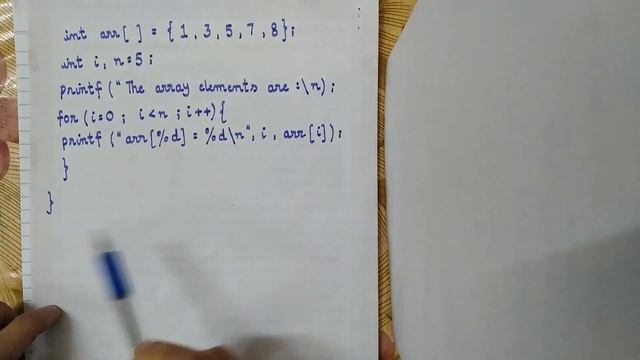 int arr[ ] = { 1 , 3 , 5 , 7 , 8 };
int i, n=5 ;
printf (" The array elements are :\n) ;
for (i=0 ; i<n ; i++){
printf ("arr[%d] = %d\n", i , arr[i]) ;
}
}